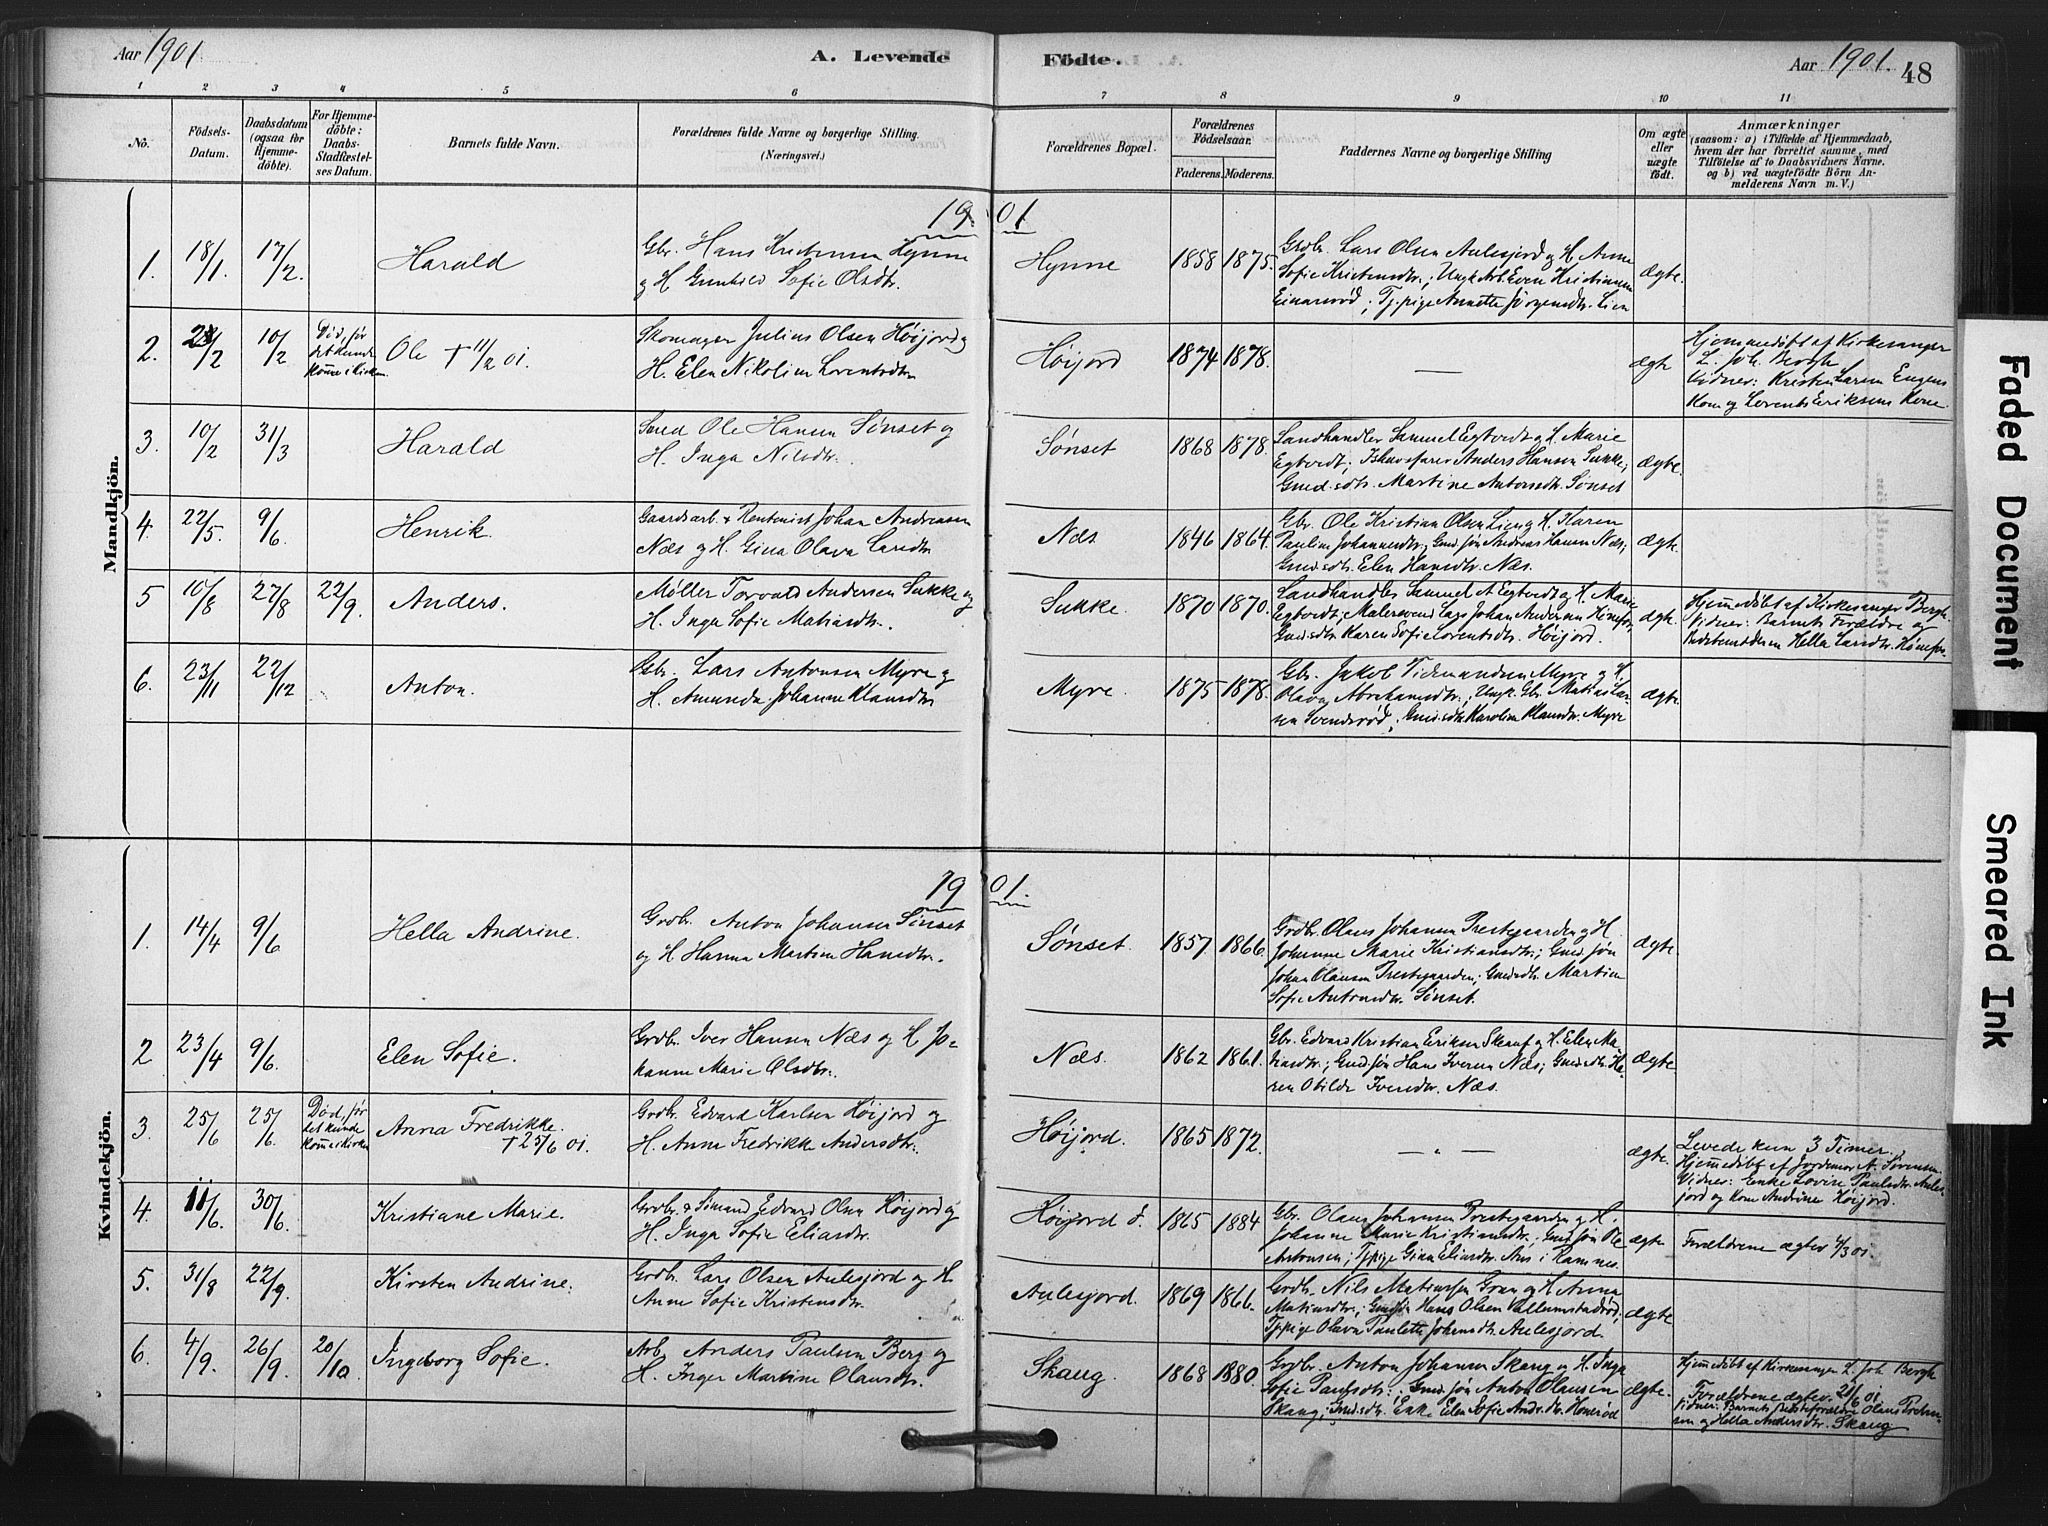 Aar 1901.
A. Levende
Födte.
Aar 1901.
48
1 2 3 4 5 6 7 8 9 10 11
No.
Födsels-
Datum.
Daabsdatum
(ogsaa for
Hjemme-
döbte).
For Hjemme-
döbte:
Daabs-
Stadfæstel-
ses Datum.
Barnets fulde Navn.
Forældrenes fulde Navne og borgerlige Stilling.
(Næringsvei.)
Forældrenes Bopæl.
Forældrenes
Födselsaar.
Faderens. Moderens.
Faddernes Navne og borgerlige Stilling
Om ægte
eller
uægte
födt.
Anmærkninger
(saasom: a) i Tilfælde af Hjemmedaab,
hvem der har forrettet samme, med
Tilföielse af to Daabsvidners Navne.
og b) ved uægtefödte Börn An-
melderens Navn m. V.)
Mandkjön.
1901.
1. 18/1. 17/2. Harald
Gbr. Hans Kristensen Hynne
og H. Gunhild Sofie Olsdtr.
Hynne 1858 1875.
Grdbr. Lars Olsen Aulesjord og H. Anne
Sofie Kristensdtr.; Ungk. Arb. Even Kristiansen
Einarsrød; Tj.pige Annette Jørgensdtr. Lien
ægte.
2. 2/2 10/2
Död, før
det kunde
komme i Kirken
Ole † 11/2 01.
Skomager Julius Olsen Höijord og
H. Elen Nikoline Lorentsdtr.
Höijord 1874 1878. — ægte
Hjemmedöbt af Kirkesanger
L. Joh. Bergh
Vidner: Kristen Larsen Engens
Kone og Lorents Eriksens Kone.
3. 10/2 31/3 Harald
Smed Ole Hansen Sønset og
H. Inga Nilsdtr.
Sønset 1868 1878.
Landhandler Samuel Egtvedt og H. Marie
Egtvedt; Anders Hansen Sukke;
Gmd.sdtr. Martine Antonsdtr. Sønset
ægte.
4. 22/5. 9/6 Henrik
Gaardarb. & Rentenist Johan Andreassen
Næs og H. Gina Olava Larsdtr.
Næs. 1846 1864.
Gbr. Ole Kristian Olsen Lien og H. Karen
Pauline Johannesdtr.; Gmd.søn Andreas Hansen Næs;
Gmd.sdtr. Elen Hansdtr. Næs.
ægte.
5 10/8 27/8 22/9. Anders.
Møller Torvald Andersen Sukke og
H. Inga Sofie Matiasdtr.
Sukke. 1870 1870.
Landhandler Samuel A Egtvedt og H. Marie
Egtvedt; Malersvend Lars Johan Andersen
Gmd.sdtr. Karen Sofie Lorentsdtr. Höijord.
ægte.
Hjemmedöbt af Kirkesanger Bergh.
Vidner: Barnets Forældre og
Hella Larsdtr.
6. 23/11 22/12 Anton.
Gbr. Lars Antonsen Myre og
H. Amunda Johanne Klausdtr.
Myre. 1875 1878.
Gbr. Jakob Tidemandsen Myre og H.
Olava Abrahamsdtr.; Ungk. Gbr. Matias Lar-
sen Svendsrød; Gmd.sdtr. Karoline Klausdtr. Myre
ægte.
Kvindekjön.
1901.
1. 14/4 9/6 Hella Andrine.
Grdbr. Anton Johansen Sønset
og H. Hanna Martine Hansdtr.
Sønset. 1857. 1866.
Grdbr. Olaus Johansen Prestegaarden og H.
Johanne Marie Kristiansdtr.; Gmd.søn
Johan Olausen Prestegaarden; Gmd.sdtr. Martine
Sofie Antonsdtr. Sønset.
ægte.
2 23/4 9/6. Elen Sofie.
Grdbr. Iver Hansen Næs og H. Jo-
hanne Marie Olsdtr.
Næs. 1862 1861.
Gbr. Edvard Kristian Eriksen og H. Elen Ma-
tiasdtr.; Gmd.søn Hans Iversen Næs; Gmd.sdtr. Ka-
ren Otilde Iversdtr. Næs.
ægte.
3. 25/6 25/6.
Død, før
det kunde
komme i Kirken
Anna Fredrikke.
† 25/6 01.
Grdbr. Edvard Karlsen Höijord og
H. Anne Fredrikke Andersdtr.
Höijord. 1865 1872. — " — ægte.
Levede kun 3 Timer.
Hjemmedöbt af Jordemor A. Sørensen
Vidner: Enke Lovise Paulsdtr. Aules-
jord og Kone Andrine Höijord.
4. 11/6. 30/6. Kristiane Marie.
Grdbr. & Sömand Edvard Olsen Höijord og
H. Inga Sofie Eliasdtr.
Höijord 1865 1884
Gbr. Olaus Johansen Prestegaarden og H.
Johanne Marie Kristiansdtr.; Gmd.søn Ole
Antonsen; Tj.pige Gina Eliasdtr. Aas i Ramnes.
ægte
Forældrene ægtev. 4/3 01.
5. 31/8 22/9. Kirsten Andrine.
Grdbr. Lars Olsen Aulesjord og H.
Anne Sofie Kristensdtr.
Aulesjord. 1869 1866.
Grdbr. Nils Matiassen Gran og H. Anna
Matiasdtr.; Gmd.søn Hans Olsen
Tj.pige Olava Paulette Johansdtr. Aulesjord.
ægte.
6. 4/9. 26/9. 20/10 Ingeborg Sofie.
Arb. Anders Paulsen Berg og
H. Inger Martine Olausdtr.
Skaug. 1868 1880.
Grdbr. Anton Johansen Skaug og H. Inga
Sofie Paulsdtr.; Gmd.søn Anton Olausen
Skaug; Enke Elen Sofie Andr.dtr.
ægte.
Hjemmedöbt af Kirkesanger L. Joh. Bergh
Forældrene ægtev. 21/6 01
Vidner: Barnets Bedsteforældre Olaus
og Hella Andersdtr. Skaug
Faded Document
Smeared Ink